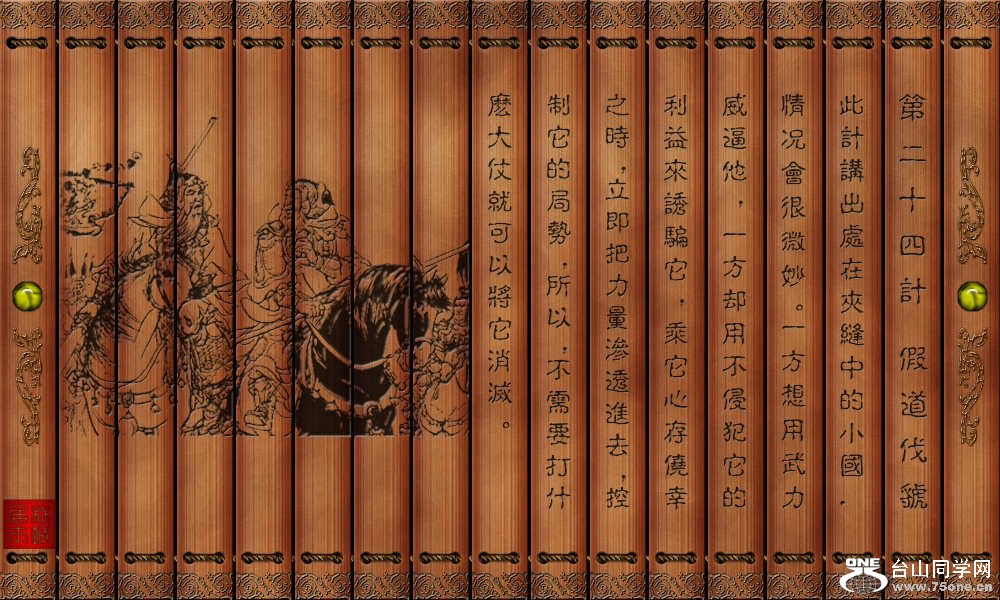 第二十四計 假道伐虢
此計講出處在夾縫中的小國，
情况會很微妙。一方想用武力
威逼他，一方却用不侵犯它的
利益來誘騙它，乘它心存僥幸
之時，立即把力量滲透進去，控
制它的局勢，所以，不需要打什
麽大仗就可以將它消滅。
ONE 台山同学网
www.75one.cn